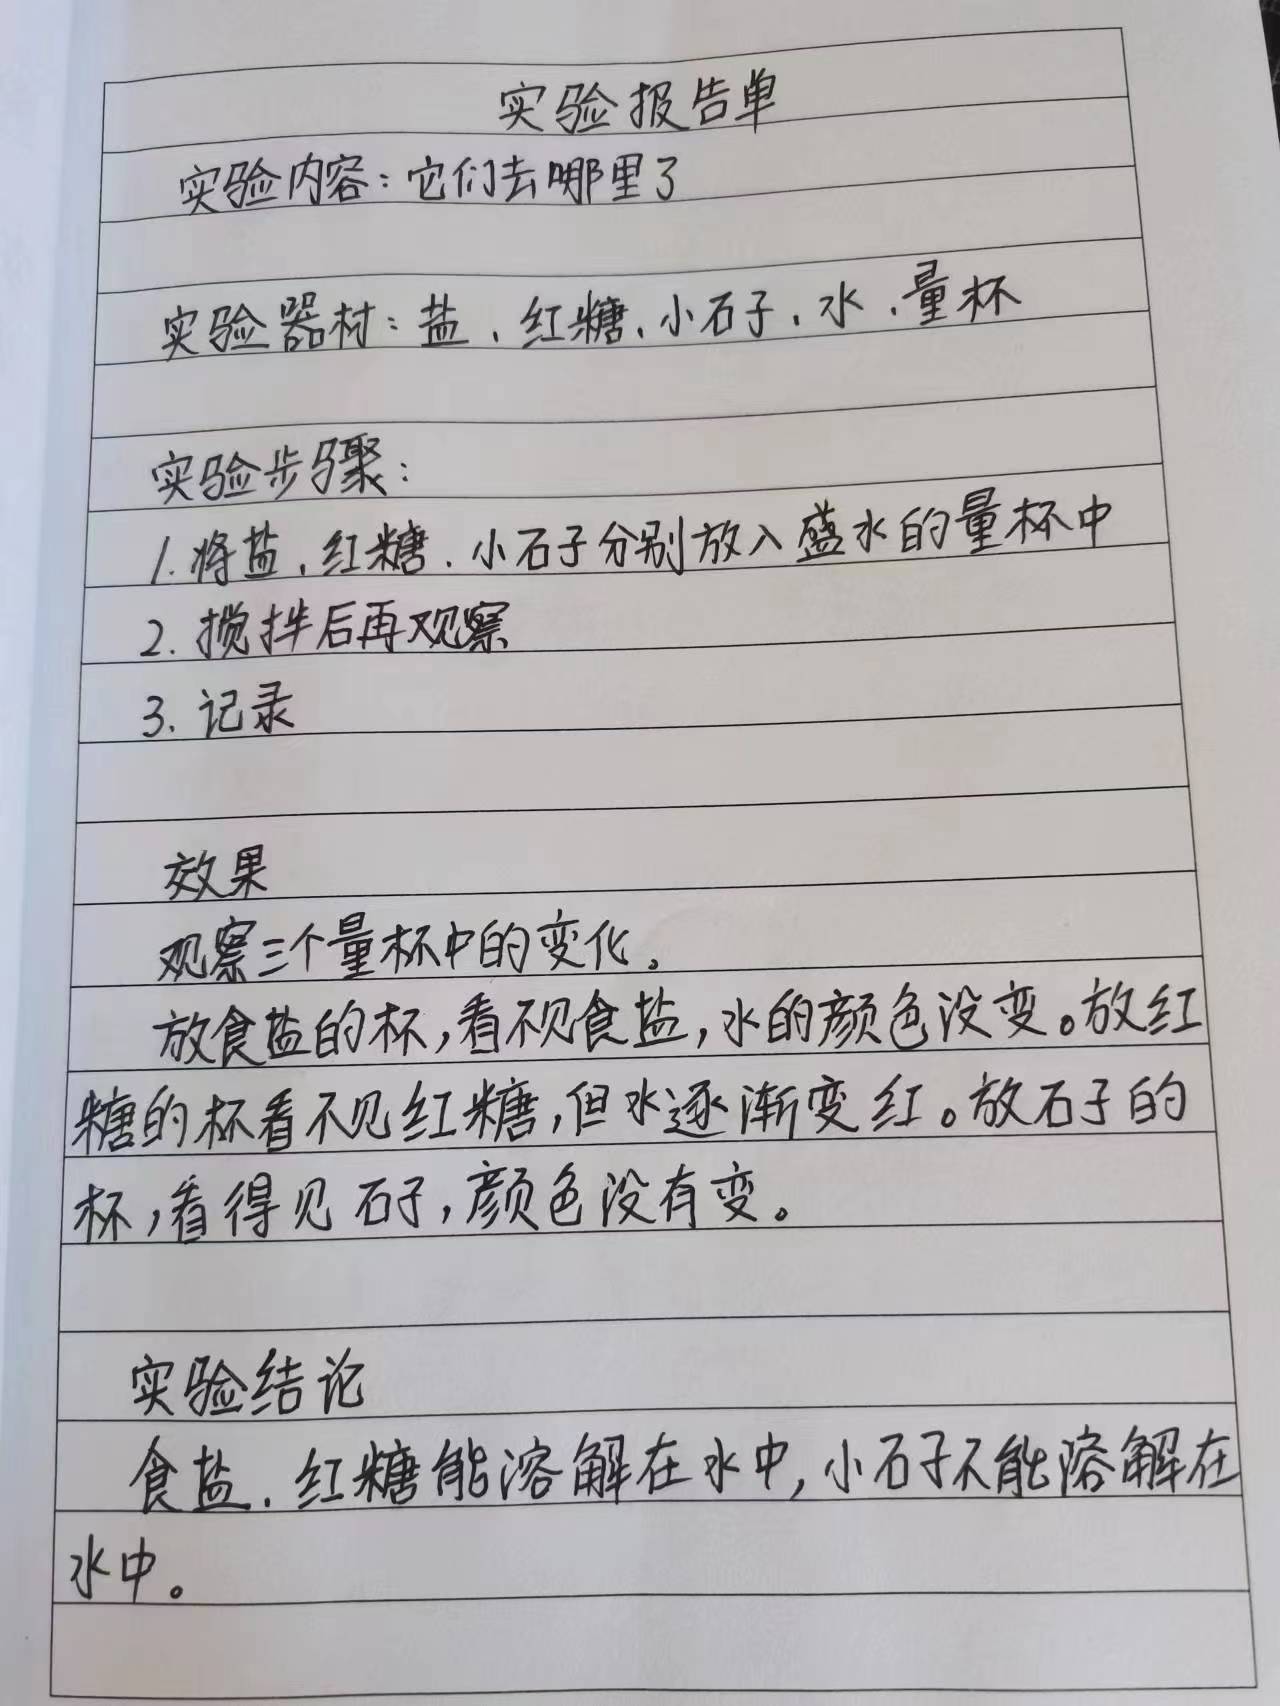 实验报告单
实验内容：它们去哪里了
实验器材：盐、红糖、小石子、水、量杯
实验步骤：
1.将盐、红糖、小石子分别放入盛水的量杯中
2.搅拌后再观察
3.记录
效果
观察三个量杯中的变化。
放食盐的杯，看不见食盐，水的颜色没变。放红
糖的杯看不见红糖，但水逐渐变红。放石子的
杯，看得见石子，颜色没有变。
实验结论
食盐、红糖能溶解在水中，小石子不能溶解在
水中。